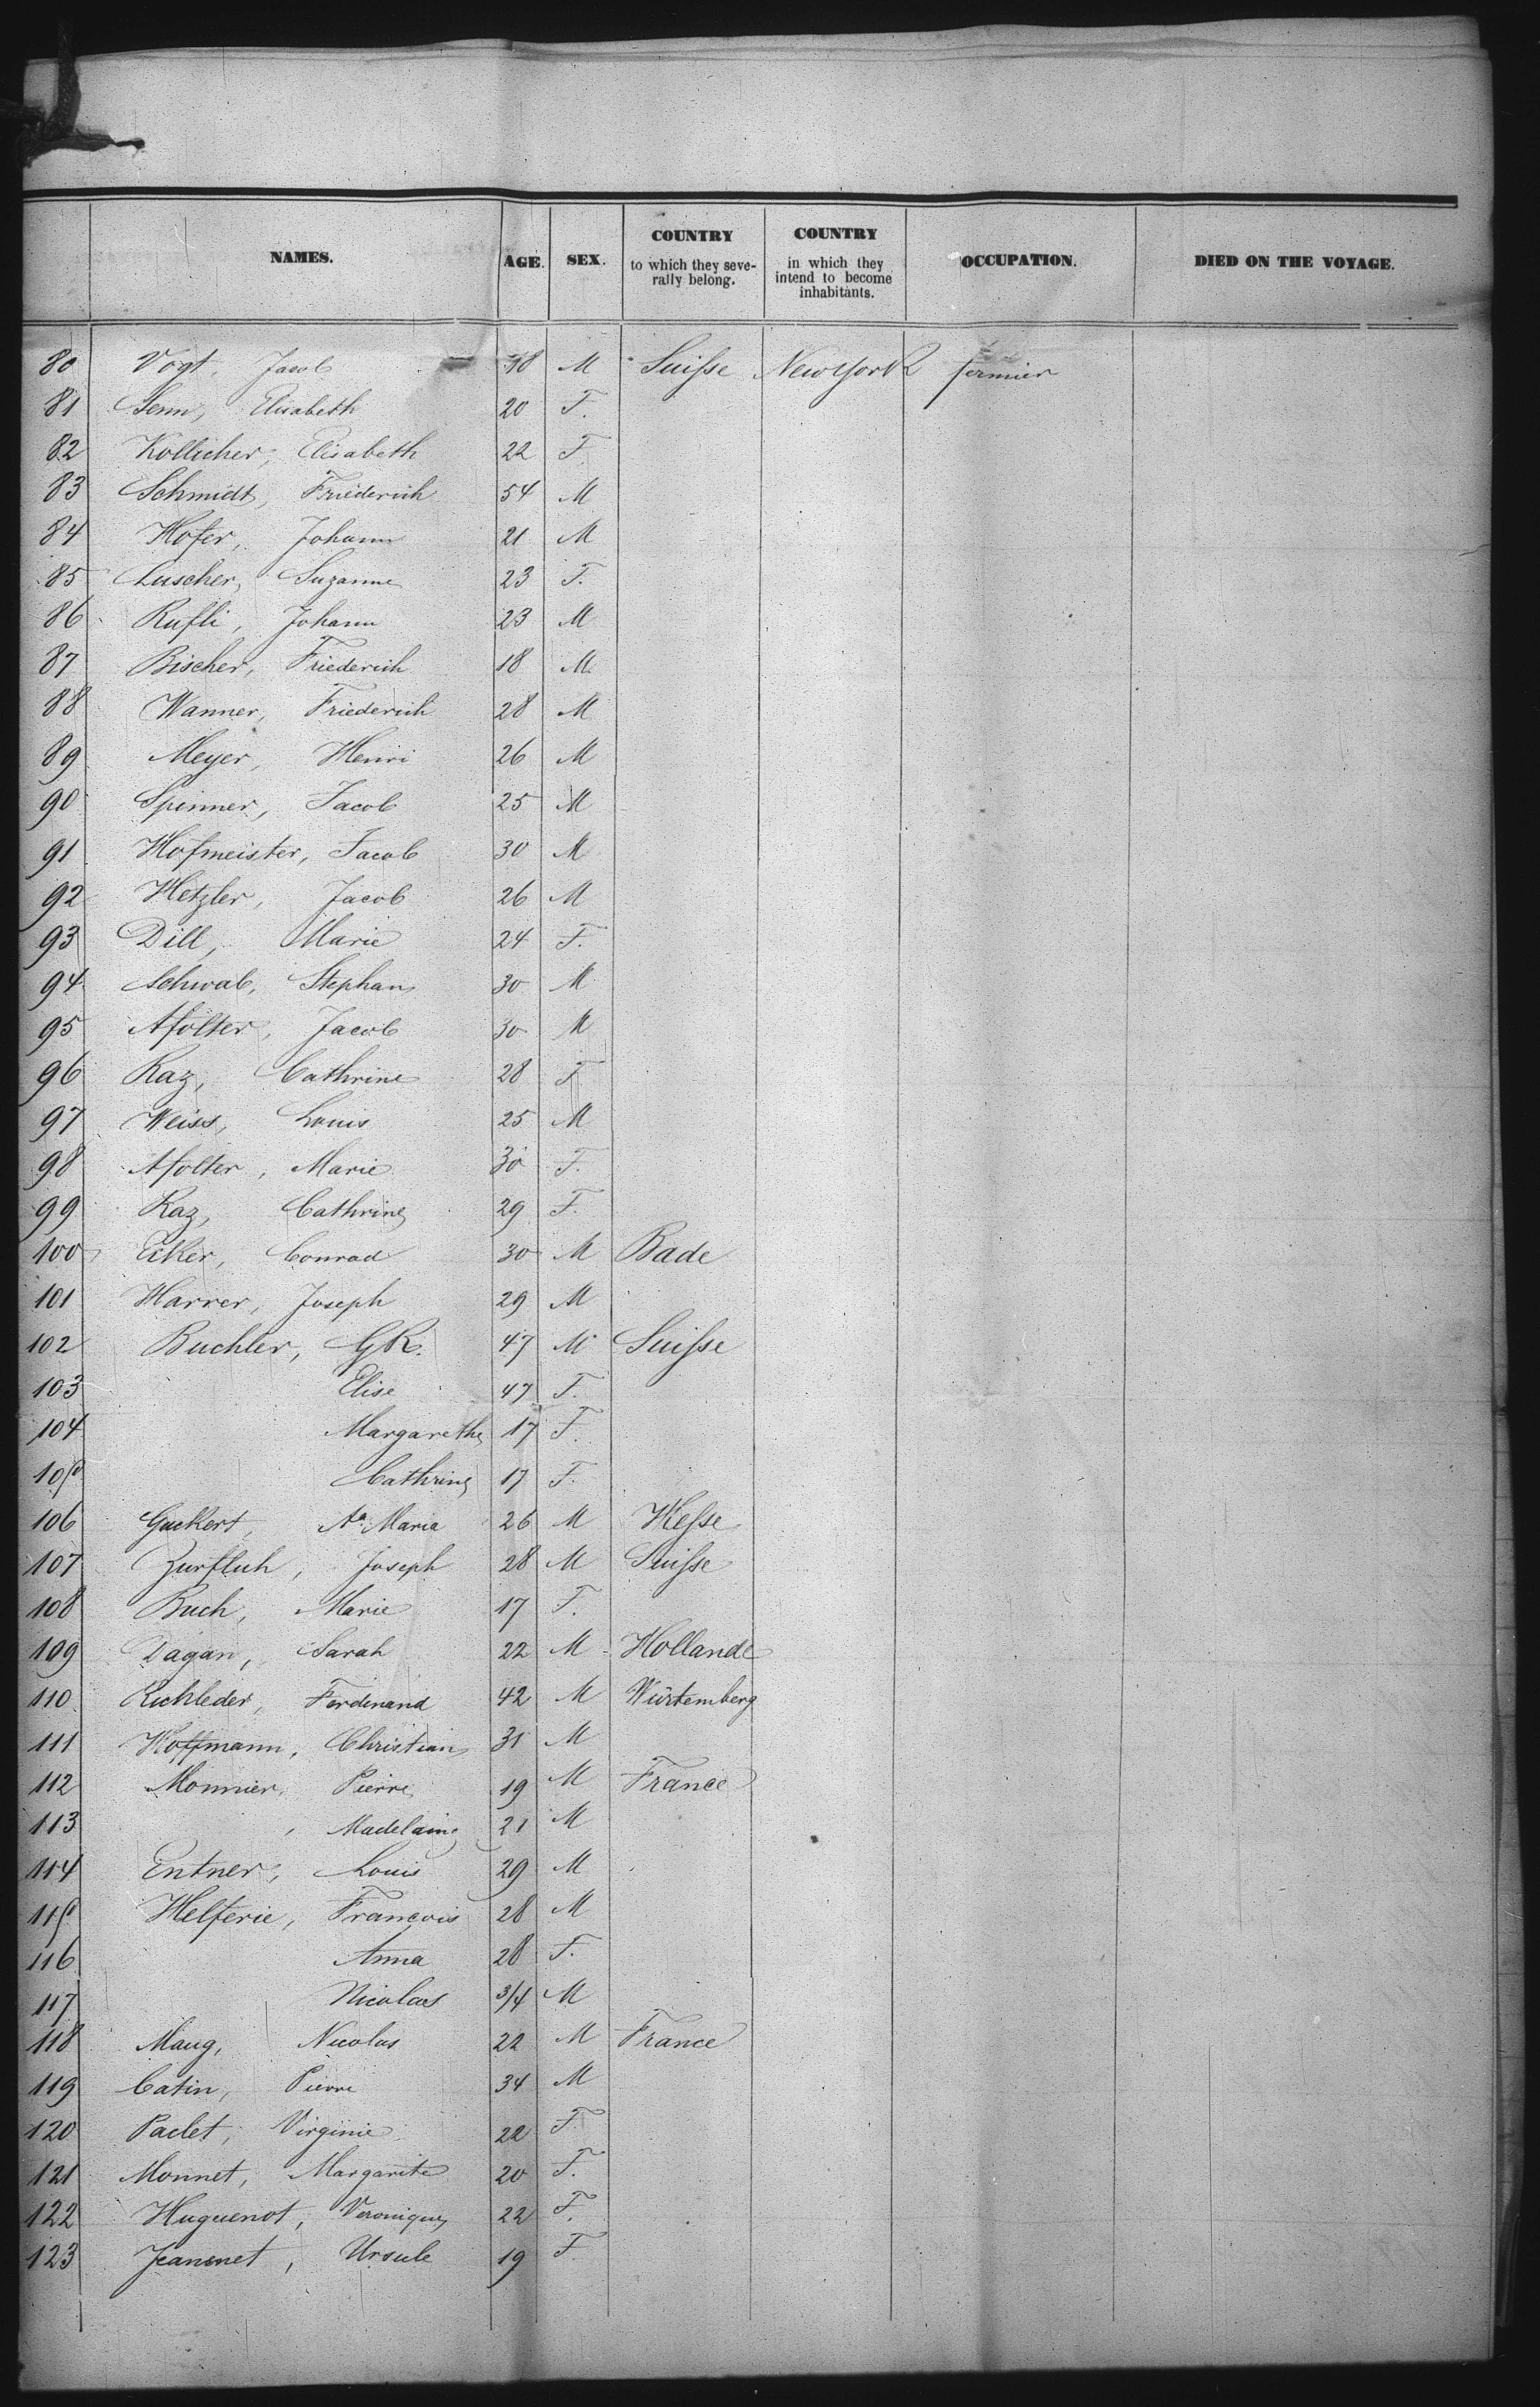 NAMES. AGE. SEX. COUNTRY to which they severally belong. COUNTRY in which they intend to become inhabitants. OCCUPATION. DIED ON THE VOYAGE.
80 Vogt, Jacob 18 M Suisse New York fermier
81 Senn, Elisabeth 20 F.
82 Kollicher, Elisabeth 22 F
83 Schmidt, Friederich 54 M
84 Hofer, Johann 21 M
85 Luscher, Suzanne 23 F.
86 Rufli, Johann 23 M
87 Bischer, Friederich 18 M
88 Wanner, Friederich 28 M
89 Meyer, Henri 26 M
90 Spinner, Jacob 25 M
91 Hofmeister, Jacob 30 M
92 Hetzler, Jacob 26 M
93 Dill, Marie 24 F.
94 Schwab, Stephan 30 M
95 Afolter, Jacob 30 M
96 Kaz, Cathrine 28 F
97 Weiss, Louis 25 M
98 Afolter, Marie 30 F.
99 Kaz, Cathrine 29 F.
100 Ecker, Conrad 30 M Bade
101 Harrer, Joseph 29 M
102 Buchler, GR. 47 M Suisse
103 Elise 47 F.
104 Margarethe 17 F.
105 Cathrine 17 F.
106 Guckert, Aª Maria 26 M Hesse
107 Zurfluh, Joseph 28 M Suisse
108 Buch, Marie 17 F.
109 Dagan, Sarah 22 M Hollande
110 Richleder, Ferdinand 42 M Würtemberg
111 Hoffmann, Christian 31 M
112 Monnier, Pierre 19 M France
113 Madelaine 21 M
114 Entner, Louis 29 M
115 Helferie, Francois 28 M
116 Anna 28 F.
117 Nicolas 3/4 M
118 Maug, Nicolas 22 M France
119 Catin, Pierre 34 M
120 Paclet, Virginie 22 F.
121 Monnet, Margarite 20 F.
122 Huguenot, Veronique 22 F.
123 Jeannet, Ursule 19 F.